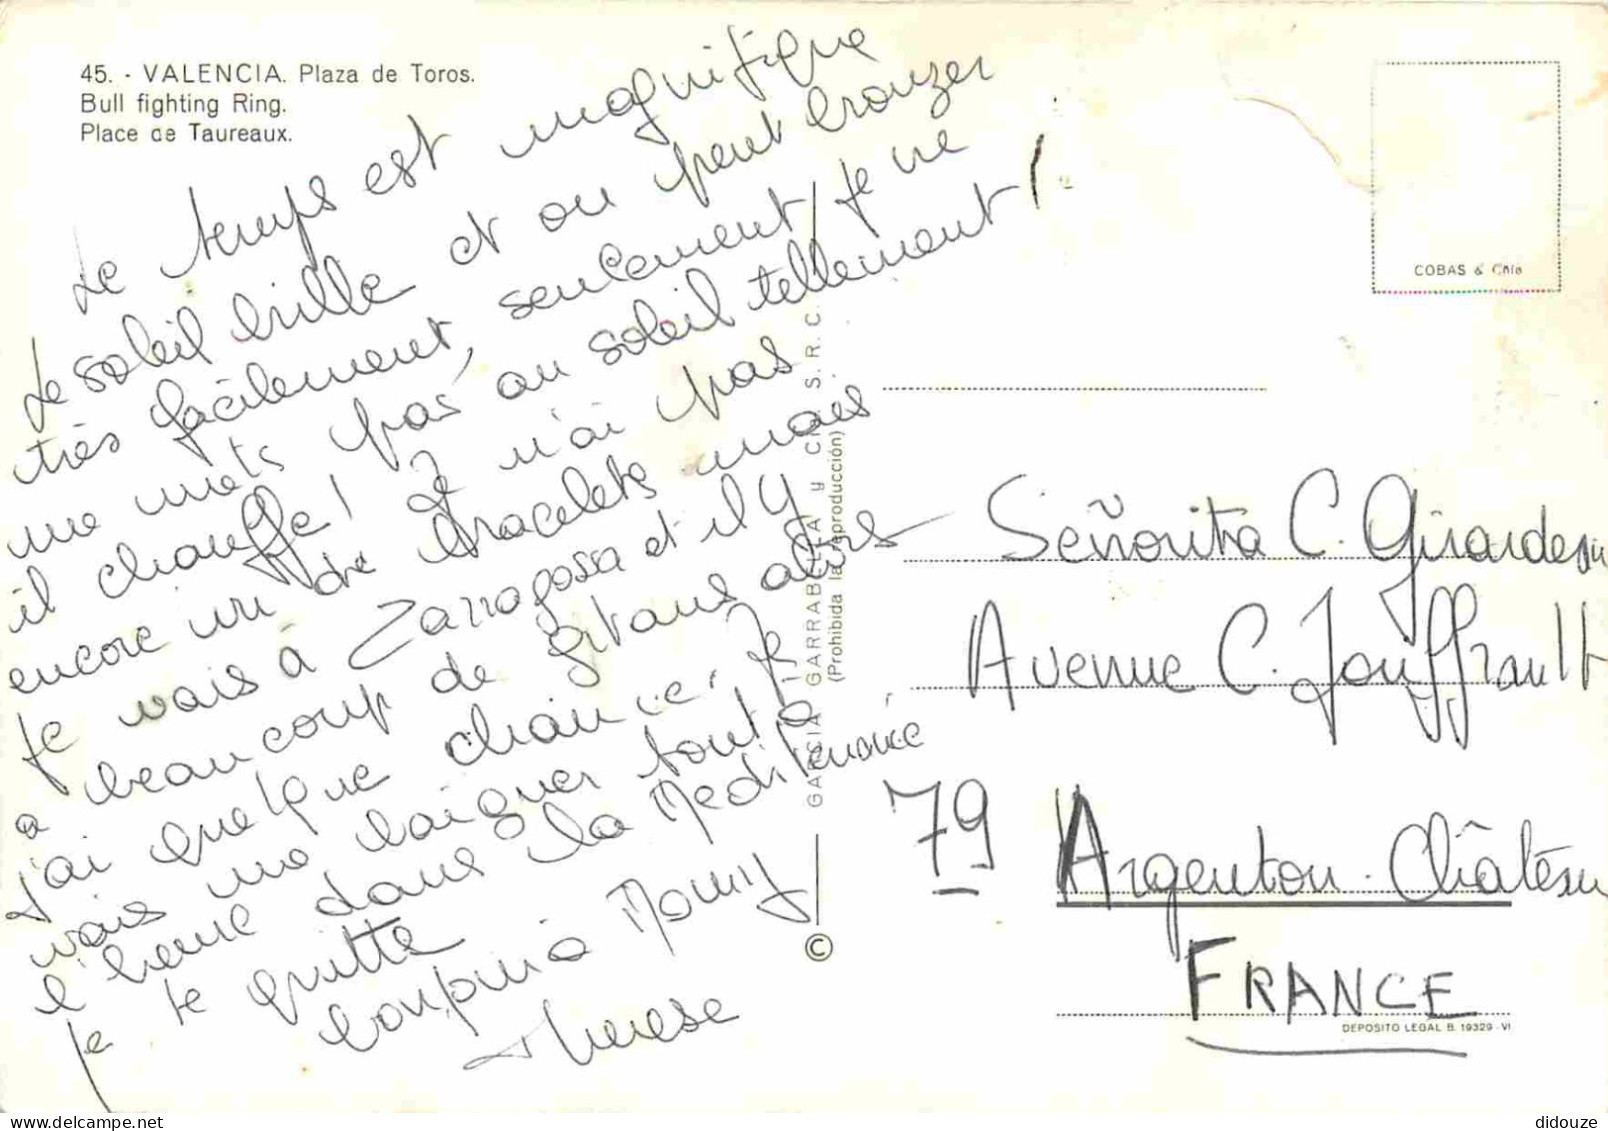 45. - VALENCIA. Plaza de Toros.
Bull fighting Ring.
Place de Taureaux.
Le temps est magnifique
le soleil brille et on peut bronzer
très facilement, seulement je ne
me mets pas au soleil tellement
il chauffe! Je n'ai pas
encore vu de bracelets mais
je vais à Zarragossa et il y
a beaucoup de gitans alors
j'ai quelque chance. Je
vais me baigner tout à
l'heure dans la Mediterranée
Je te quitte
bonjour à Mamy
Therese
GARCIA GARRABELLA y Cía. S. R. C.
(Prohibida la reproducción)
©
COBAS & Cñia
Señorita C. Girardeau
Avenue C. Jouffrault
79 Argenton-Château
FRANCE
DEPOSITO LEGAL B. 19329-VI
didouze